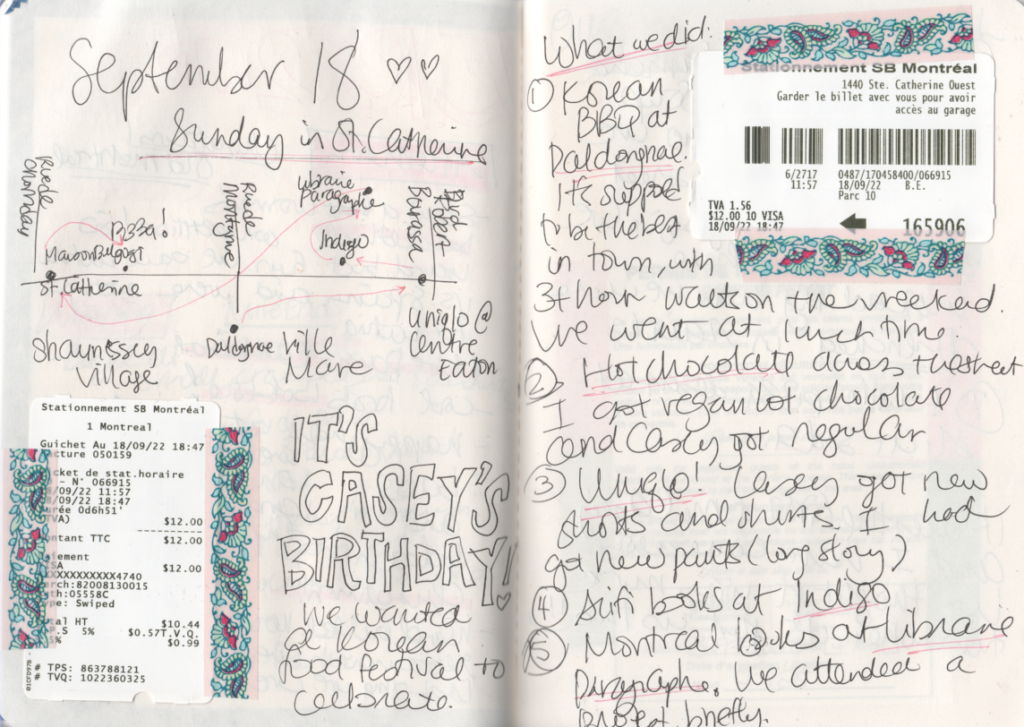 September 18 ♡♡
Sunday in St. Catherine
Rue de Chomedey
Rue de Montagne
Librairie
Paragraphe
Bourassa
Robert
Pizza!
Indigo
St. Catherine
Shaunissey
Village
Daldongnae
Ville
Mare
Uniqlo @
Centre
Eaton
Stationnement SB Montréal
1 Montreal
Guichet Au 18/09/22 18:47
acture 050159
cket de stat.horaire
- N° 066915
/09/22 11:57
/09/22 18:47
rée 0d6h51'
TVA) $12.00
ntant TTC $12.00
iement
SA $12.00
XXXXXXXXXX4740
rch:82008130015
th:05558C
pe: Swiped
al HT $10.44
.S 5% $0.57T.V.Q.
% $0.99
# TPS: 863788121
# TVQ: 1022360325
IT'S
CASEY'S
BIRTHDAY!
We wanted
a Korean
food festival to
celebrate.
What we did:
① Korean
BBQ at
Daldongnae.
It's supposed
to be the best
in town, with
3+ hour waits on the weekend.
We went at lunch time.
② Hot chocolate across the street
I got vegan hot chocolate
and Casey got regular
③ Uniqlo! Casey got new
shorts and shirts. I had
got new pants (long story)
④ Scifi books at Indigo
⑤ Montreal books at Librairie
Paragraphe. We attended a
protest briefly.
Stationnement SB Montréal
1440 Ste. Catherine Ouest
Garder le billet avec vous pour avoir
accès au garage
6/2717 0487/170458400/066915
11:57 18/09/22 B.E.
Parc 10
TVA 1.56
$12.00 10 VISA
18/09/22 18:47
165906